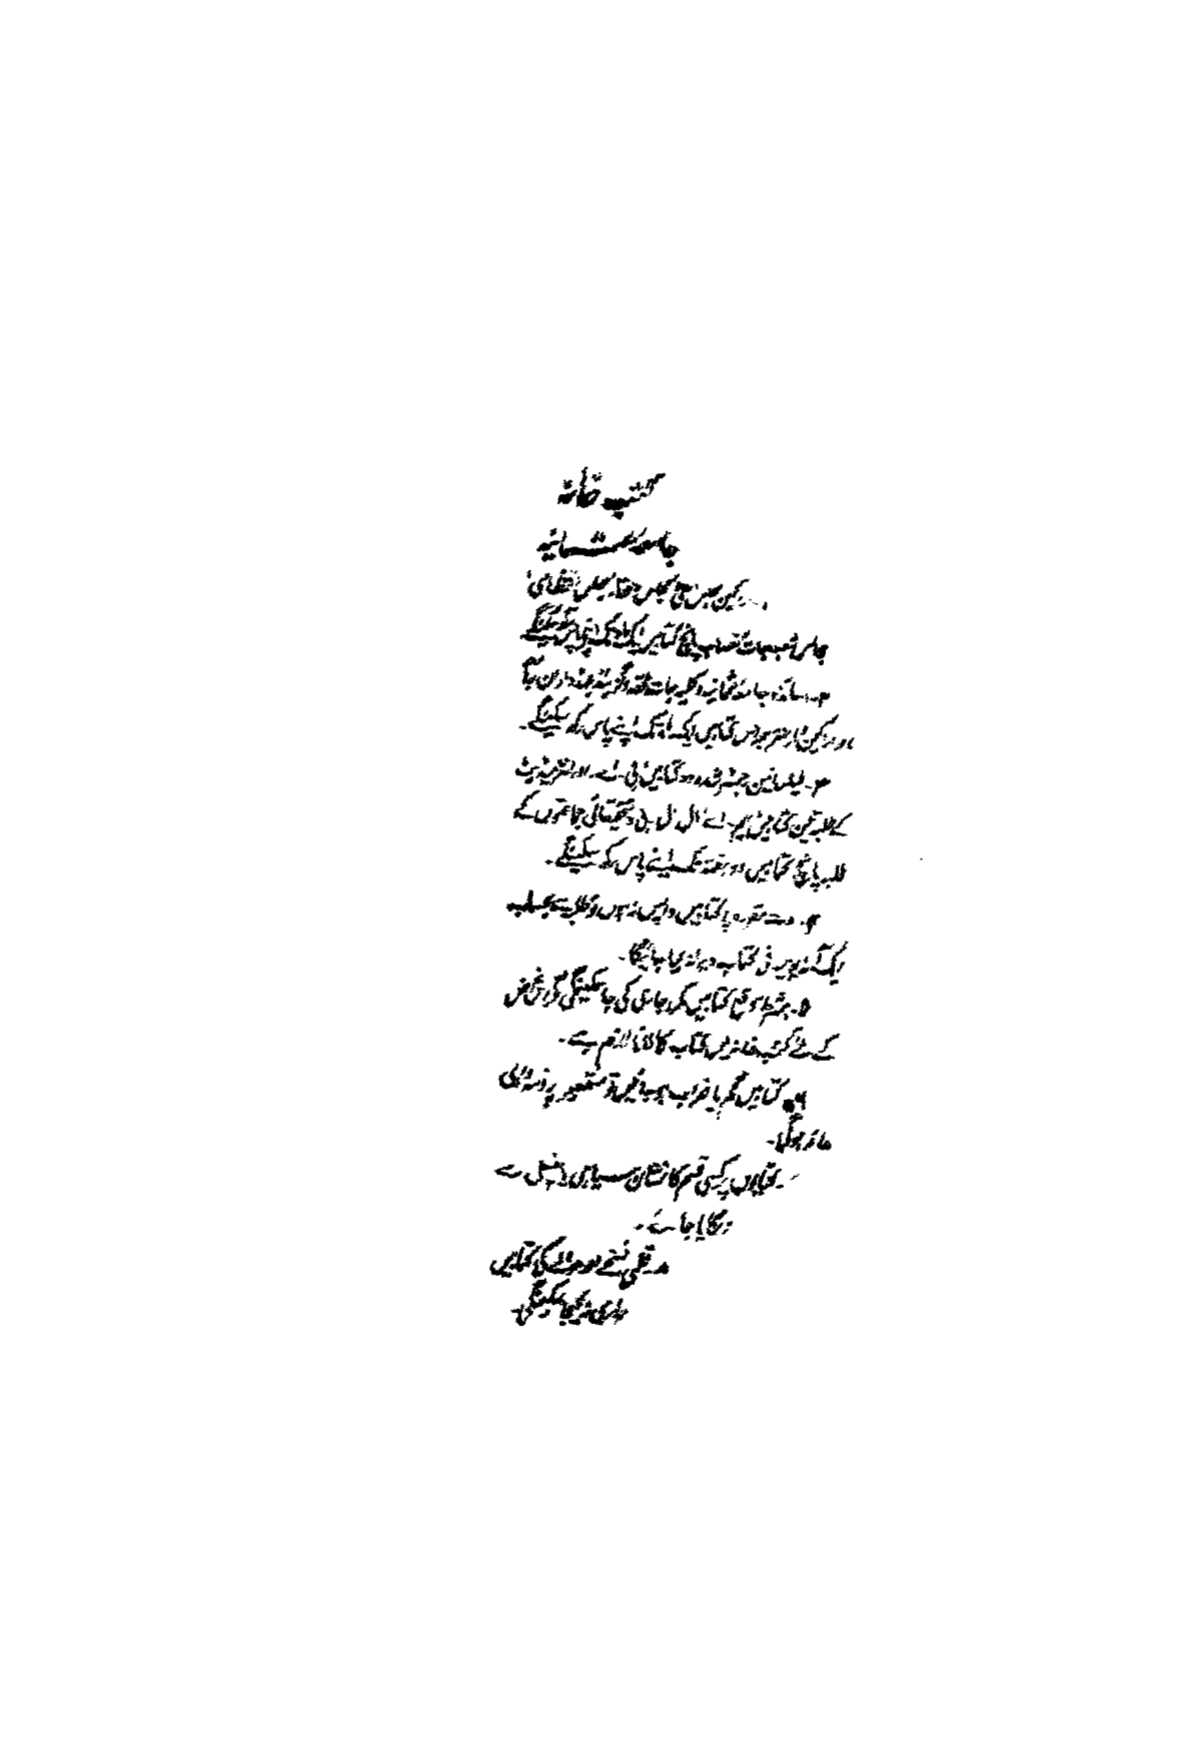 کتب خانہ
جامعہ عثمانیہ
اراکین مجلس اعلیٰ مجلس رفقاء مجلس انتظامی
مجالس شعبہ جات نصاب پانچ کتابیں ایک ماہ تک اپنے پاس رکھ سکینگے
۲۔ اساتذہ جامعہ عثمانیہ و کلیہ جات ملحقہ و گزیٹیڈ عہدہ داران
اور اراکین دس کتابیں ایک ماہ تک اپنے پاس رکھ سکینگے۔
۳۔ طیلسانین رجسٹر شدہ دو کتابیں بی۔ اے۔ اور انٹرمیڈیٹ
کے طلبہ تین کتابیں ایم۔ اے ال ال بی و تحقیقاتی جماعتوں کے
طلبہ پانچ کتابیں دو ہفتہ تک اپنے پاس رکھ سکینگے۔
۴۔ مدت مقررہ پر کتابیں واپس نہ ہوں تو طلبہ سے بحساب
ایک آنہ یومیہ فی کتاب ہرجانہ لیا جائیگا۔
۵۔ بشرط موقع کتابیں مکرر جاری کی جا سکینگی مگر اس غرض
کے لئے کتب خانہ میں کتاب کا لانا لازم ہے۔
۶۔ کتابیں گم یا خراب ہو جائیں تو مستعیر پر ذمہ داری
عائد ہوگی۔
کتابوں پر کسی قسم کا نشان سیاہی یا پنسل سے
نہ لگایا جائے۔
۸۔ قلمی نسخے اور حوالے کی کتابیں
جاری نہ کی جا سکینگی۔